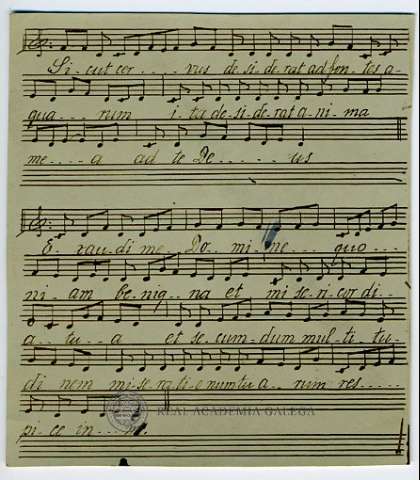 Si-cut cer....vus de-si-de-rat ad fon-tes a-
qua...rum i-ta de-si-de-rat a-ni-ma
me....a ad te De......us
E-xau-di me..Do..mi..ne...quo...
ni-am be-nig..na et mi-se-ri-cor-di..
a...tu..a et se-cun-dum mul-ti-tu-
di nem mi-se-ra-ti-o-num tu-a..rum res.....
pi-ce in..
REAL ACADEMIA GALEGA